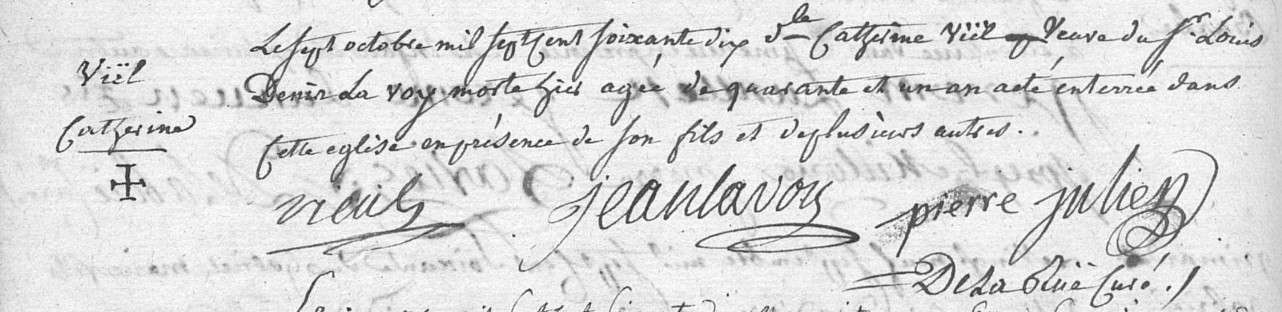 Le sept octobre mil sept cent soixante dix dlle Catherine Viël Veuve du Sr Louis
Viël
Denis La voy morte hier agée de quarante et un an a été enterrée dans
Catherine
Cette eglise en présence de son fils et de plusieurs autres.
vieil jean lavoy pierre julien
De La Rüe Curé